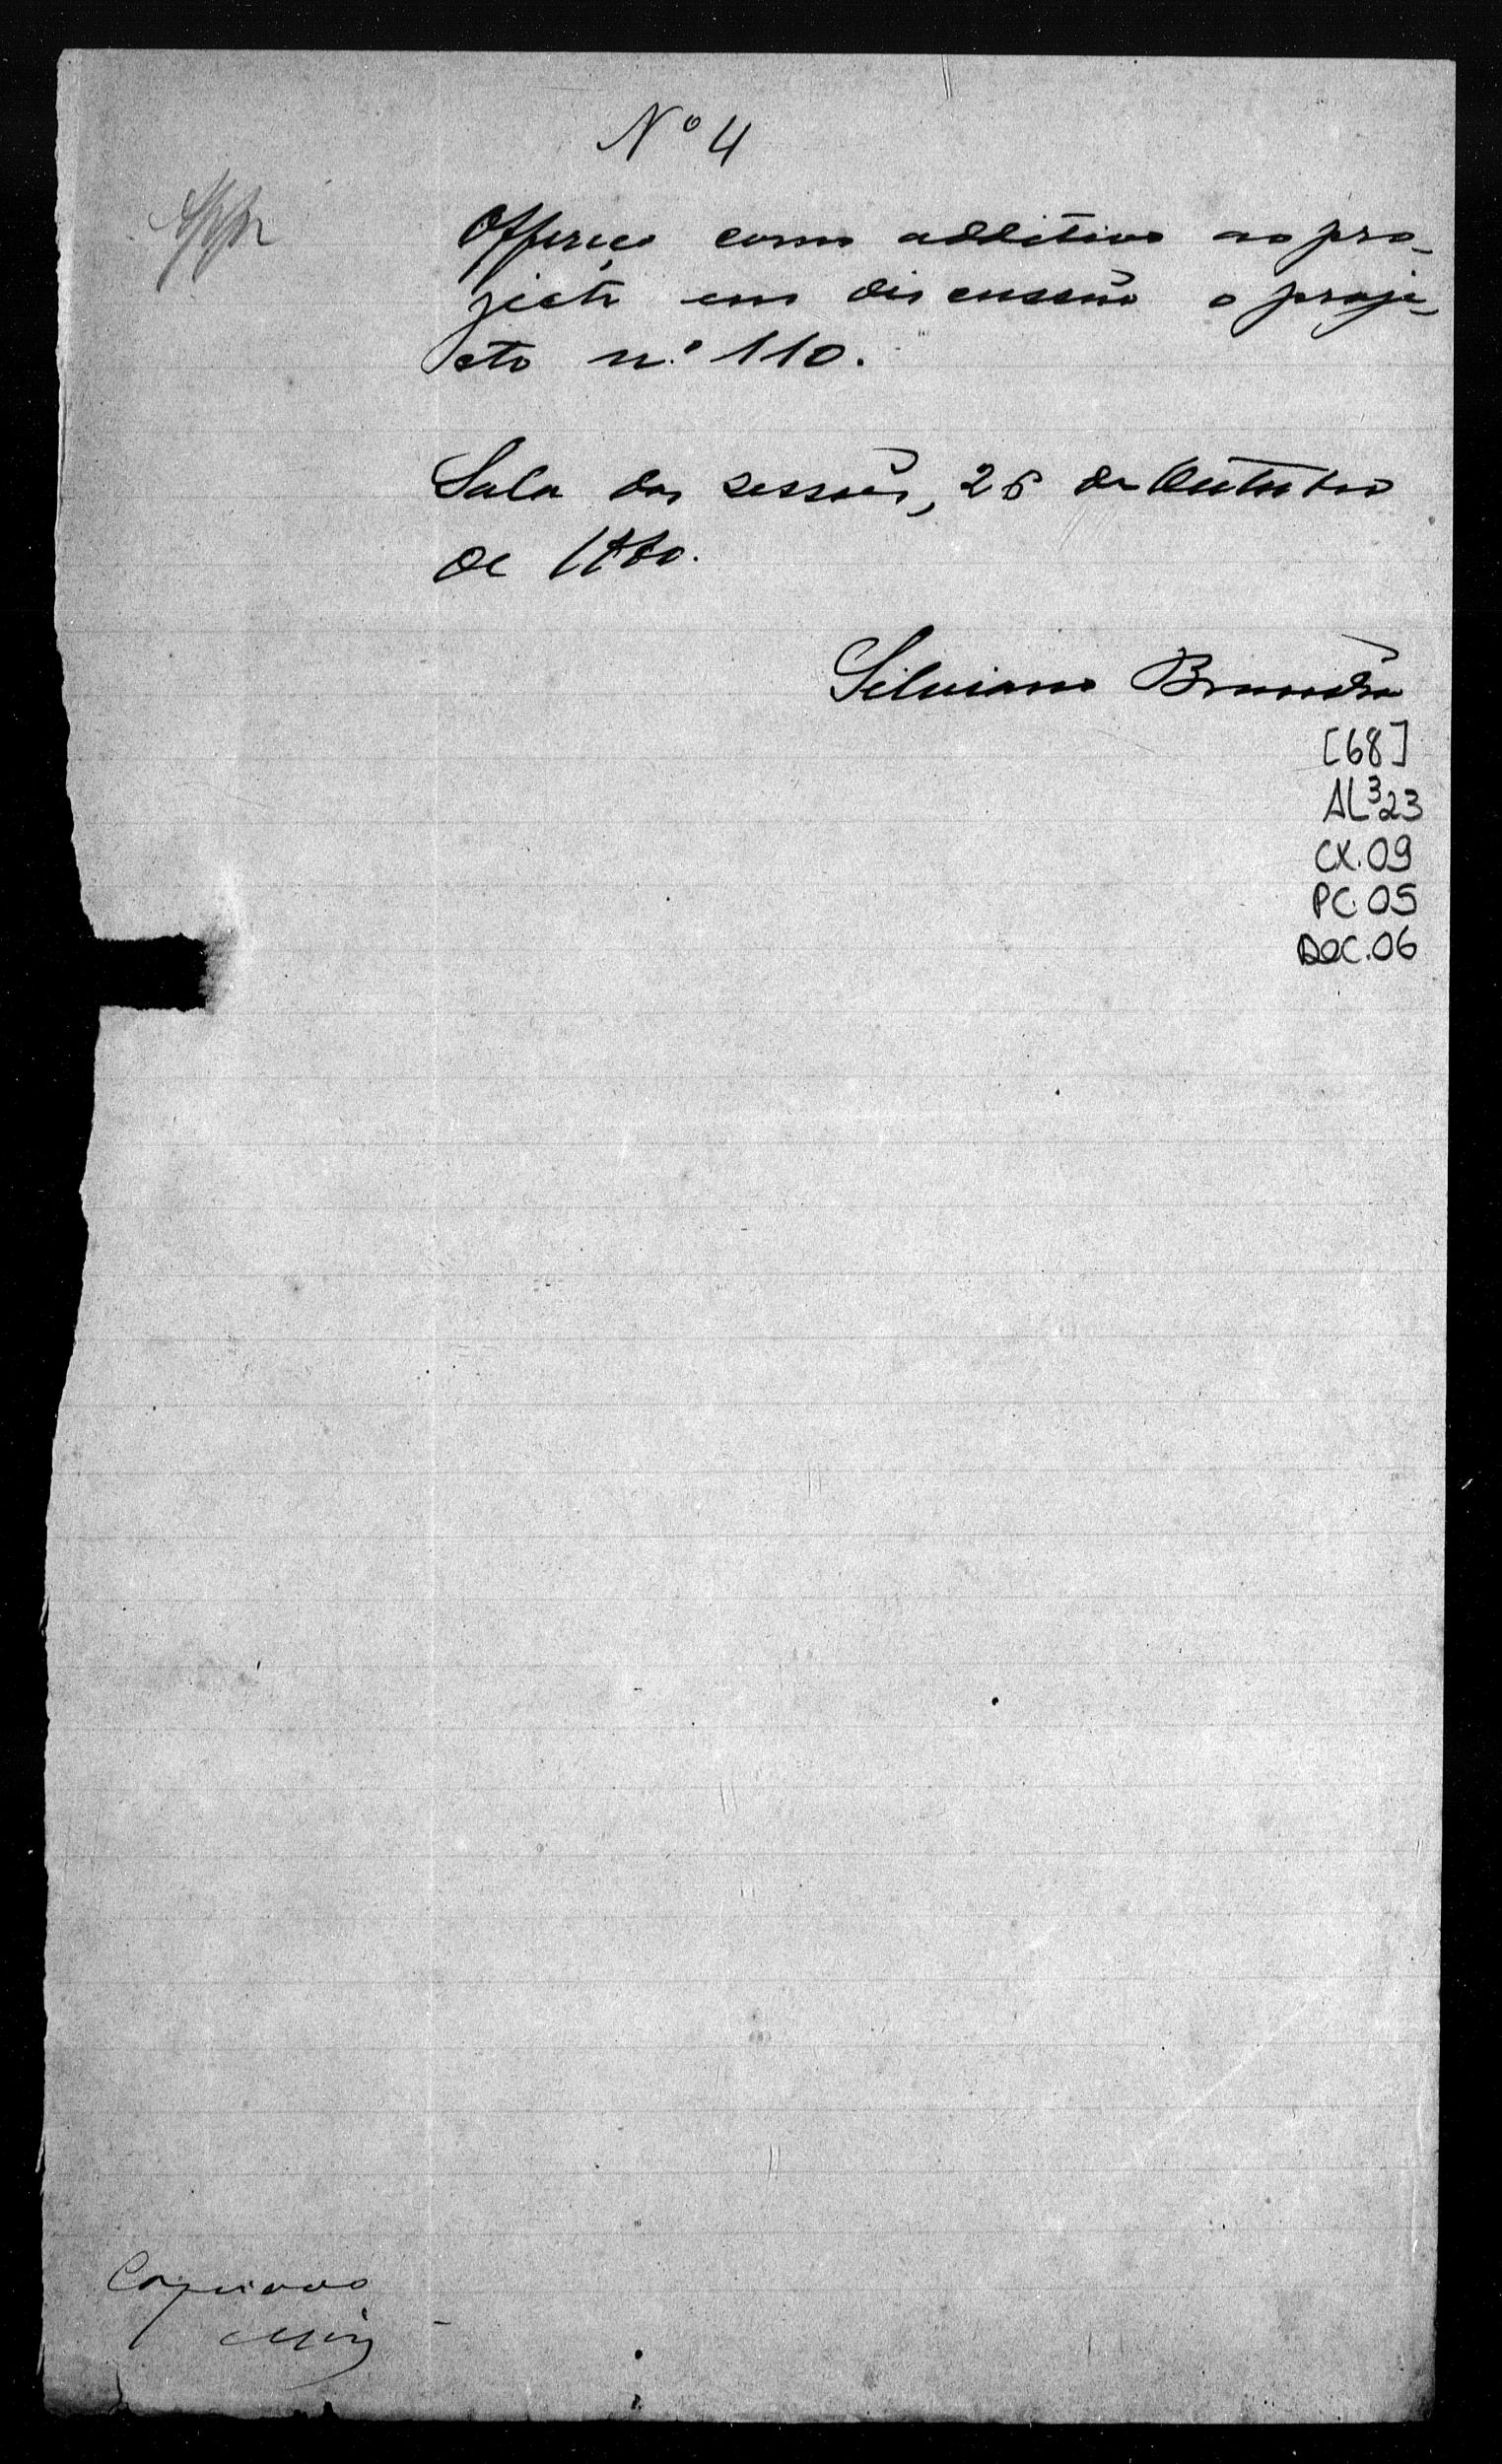 Nº 4
App
Offereço como additivo ao pro-
jecto em discussão o proje-
cto n.º 110.
Sala das sessões, 26 de Outubro
de 1880.
Silviano Brandão
[68]
AL³23
CX.09
PC.05
DOC.06
Copiado